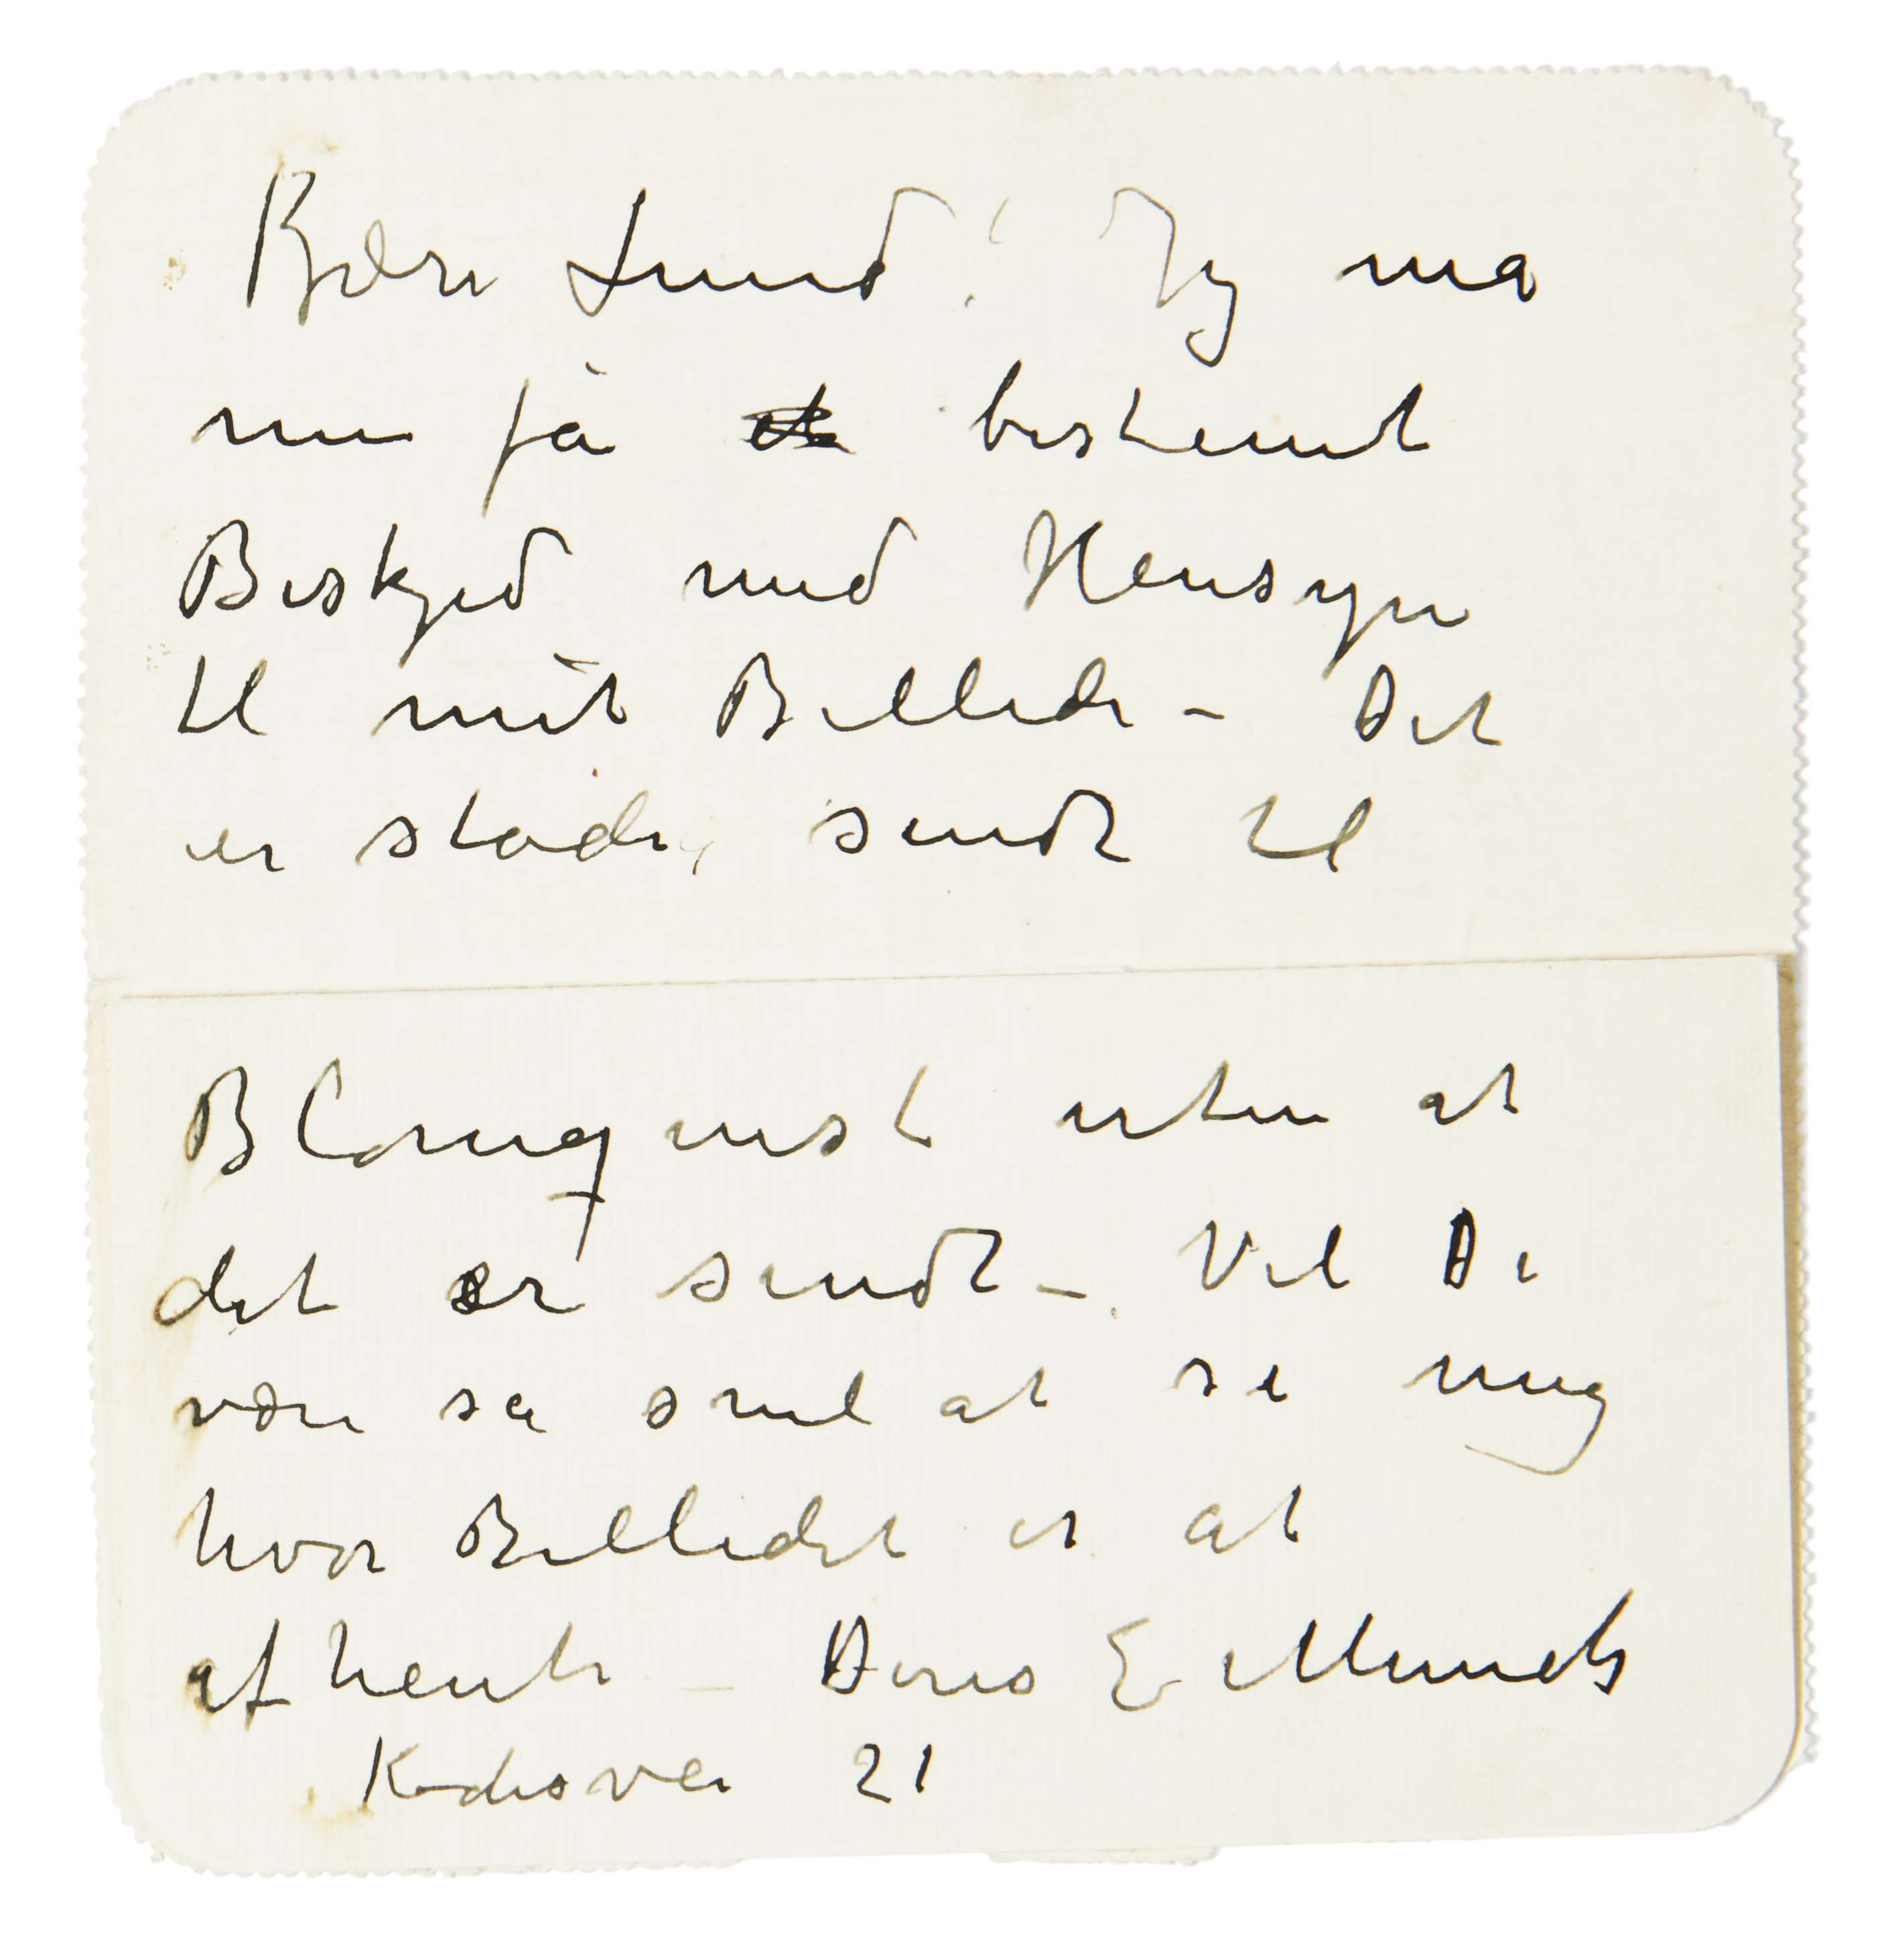 Kjære Lund! Jeg må
nu få bestemt
Beskjed med Hensyn
til mit Billede – Det
er stadig sendt til
Blomqvist uten at
det er sendt – Vil De
være så snil at si mig
hvor Billedet er at
afhente – Deres E Munch
21